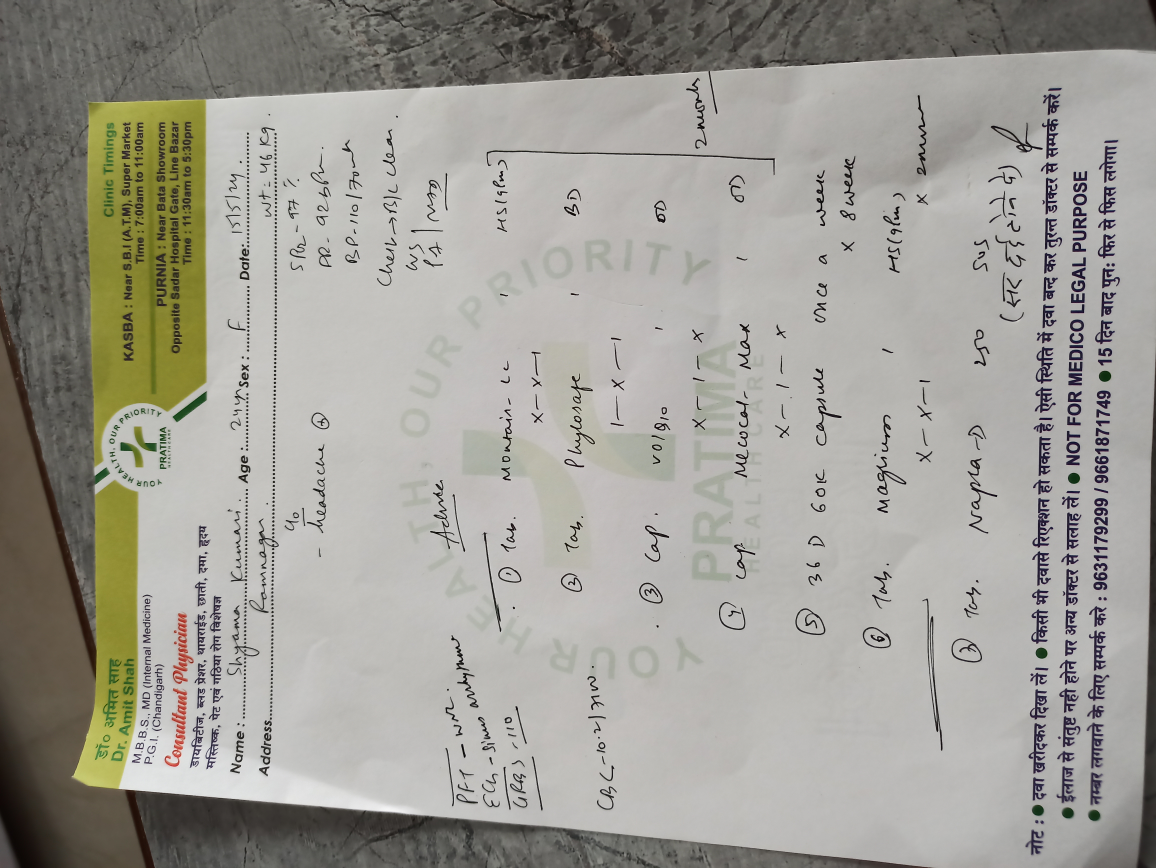 डॉ० अमित साह
Dr. Amit Shah
M.B.B.S., MD (Internal Medicine)
P.G.I. (Chandigarh)
Consultant Physician
डायबिटीज, ब्लड प्रेशर, थायराईड, छाती, दमा, हृदय
मस्तिष्क, पेट एवं गठिया रोग विशेषज्ञ
YOUR HEALTH, OUR PRIORITY
PRATIMA
HEALTH CARE
Clinic Timings
KASBA : Near S.B.I (A.T.M), Super Market
Time : 7:00am to 11:00am
PURNIA : Near Bata Showroom
Opposite Sadar Hospital Gate, Line Bazar
Time : 11:30am to 5:30pm
Name : Shyama Kumari. Age : 24yrs Sex : F Date: 15/5/24.
Address Ramnagar. wt= 46 Kg.
c/o
- headache
SPO2 - 97 %
PR - 92 bpm.
BP - 110/70
Chest → B/L clear.
P/A | NAD
PFT - WNL.
ECG - Sinus arrhythmia
GRBS - 110
CBC - 10.2/
Advice
① Tab. Montair-LC 1 HS (9pm)
x - x - 1
② Tab. 1 BD
1 - x - 1
③ Cap. 1 OD
x - 1 - x
④ Cap. Mecocal-Max 1 OD
x - 1 - x
2 month
⑤ 36 D 60K capsule once a week
x 8 week
⑥ Tab. 1 HS (9pm)
x - x - 1
⑦ Tab. Napra-D 250 SOS
(सर दर्द होने पे)
YOUR HEALTH, OUR PRIORITY
PRATIMA
HEALTH CARE
नोट : ● दवा खरीदकर दिखा लें। ● किसी भी दवासे रिएक्शन हो सकता है। ऐसी स्थिति में दवा बन्द कर तुरन्त डॉक्टर से सम्पर्क करें।
● ईलाज से संतुष्ट नही होने पर अन्य डॉक्टर से सलाह लें। ● NOT FOR MEDICO LEGAL PURPOSE
● नम्बर लगवाने के लिए सम्पर्क करे : 9631179299 / 9661871749 ● 15 दिन बाद पुन: फिर से फिस लगेगा।